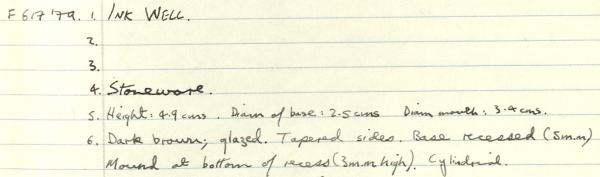 F 617'79. 1. INK WELL.
2.
3.
4. Stoneware.
5. Height: 4.9 cms. Diam of base: 2.5 cms Diam mouth: 3.4 cms.
6. Dark brown; glazed. Tapered sides. Base recessed (5m.m)
Mound at bottom of recess (3m.m high). Cylindrical.